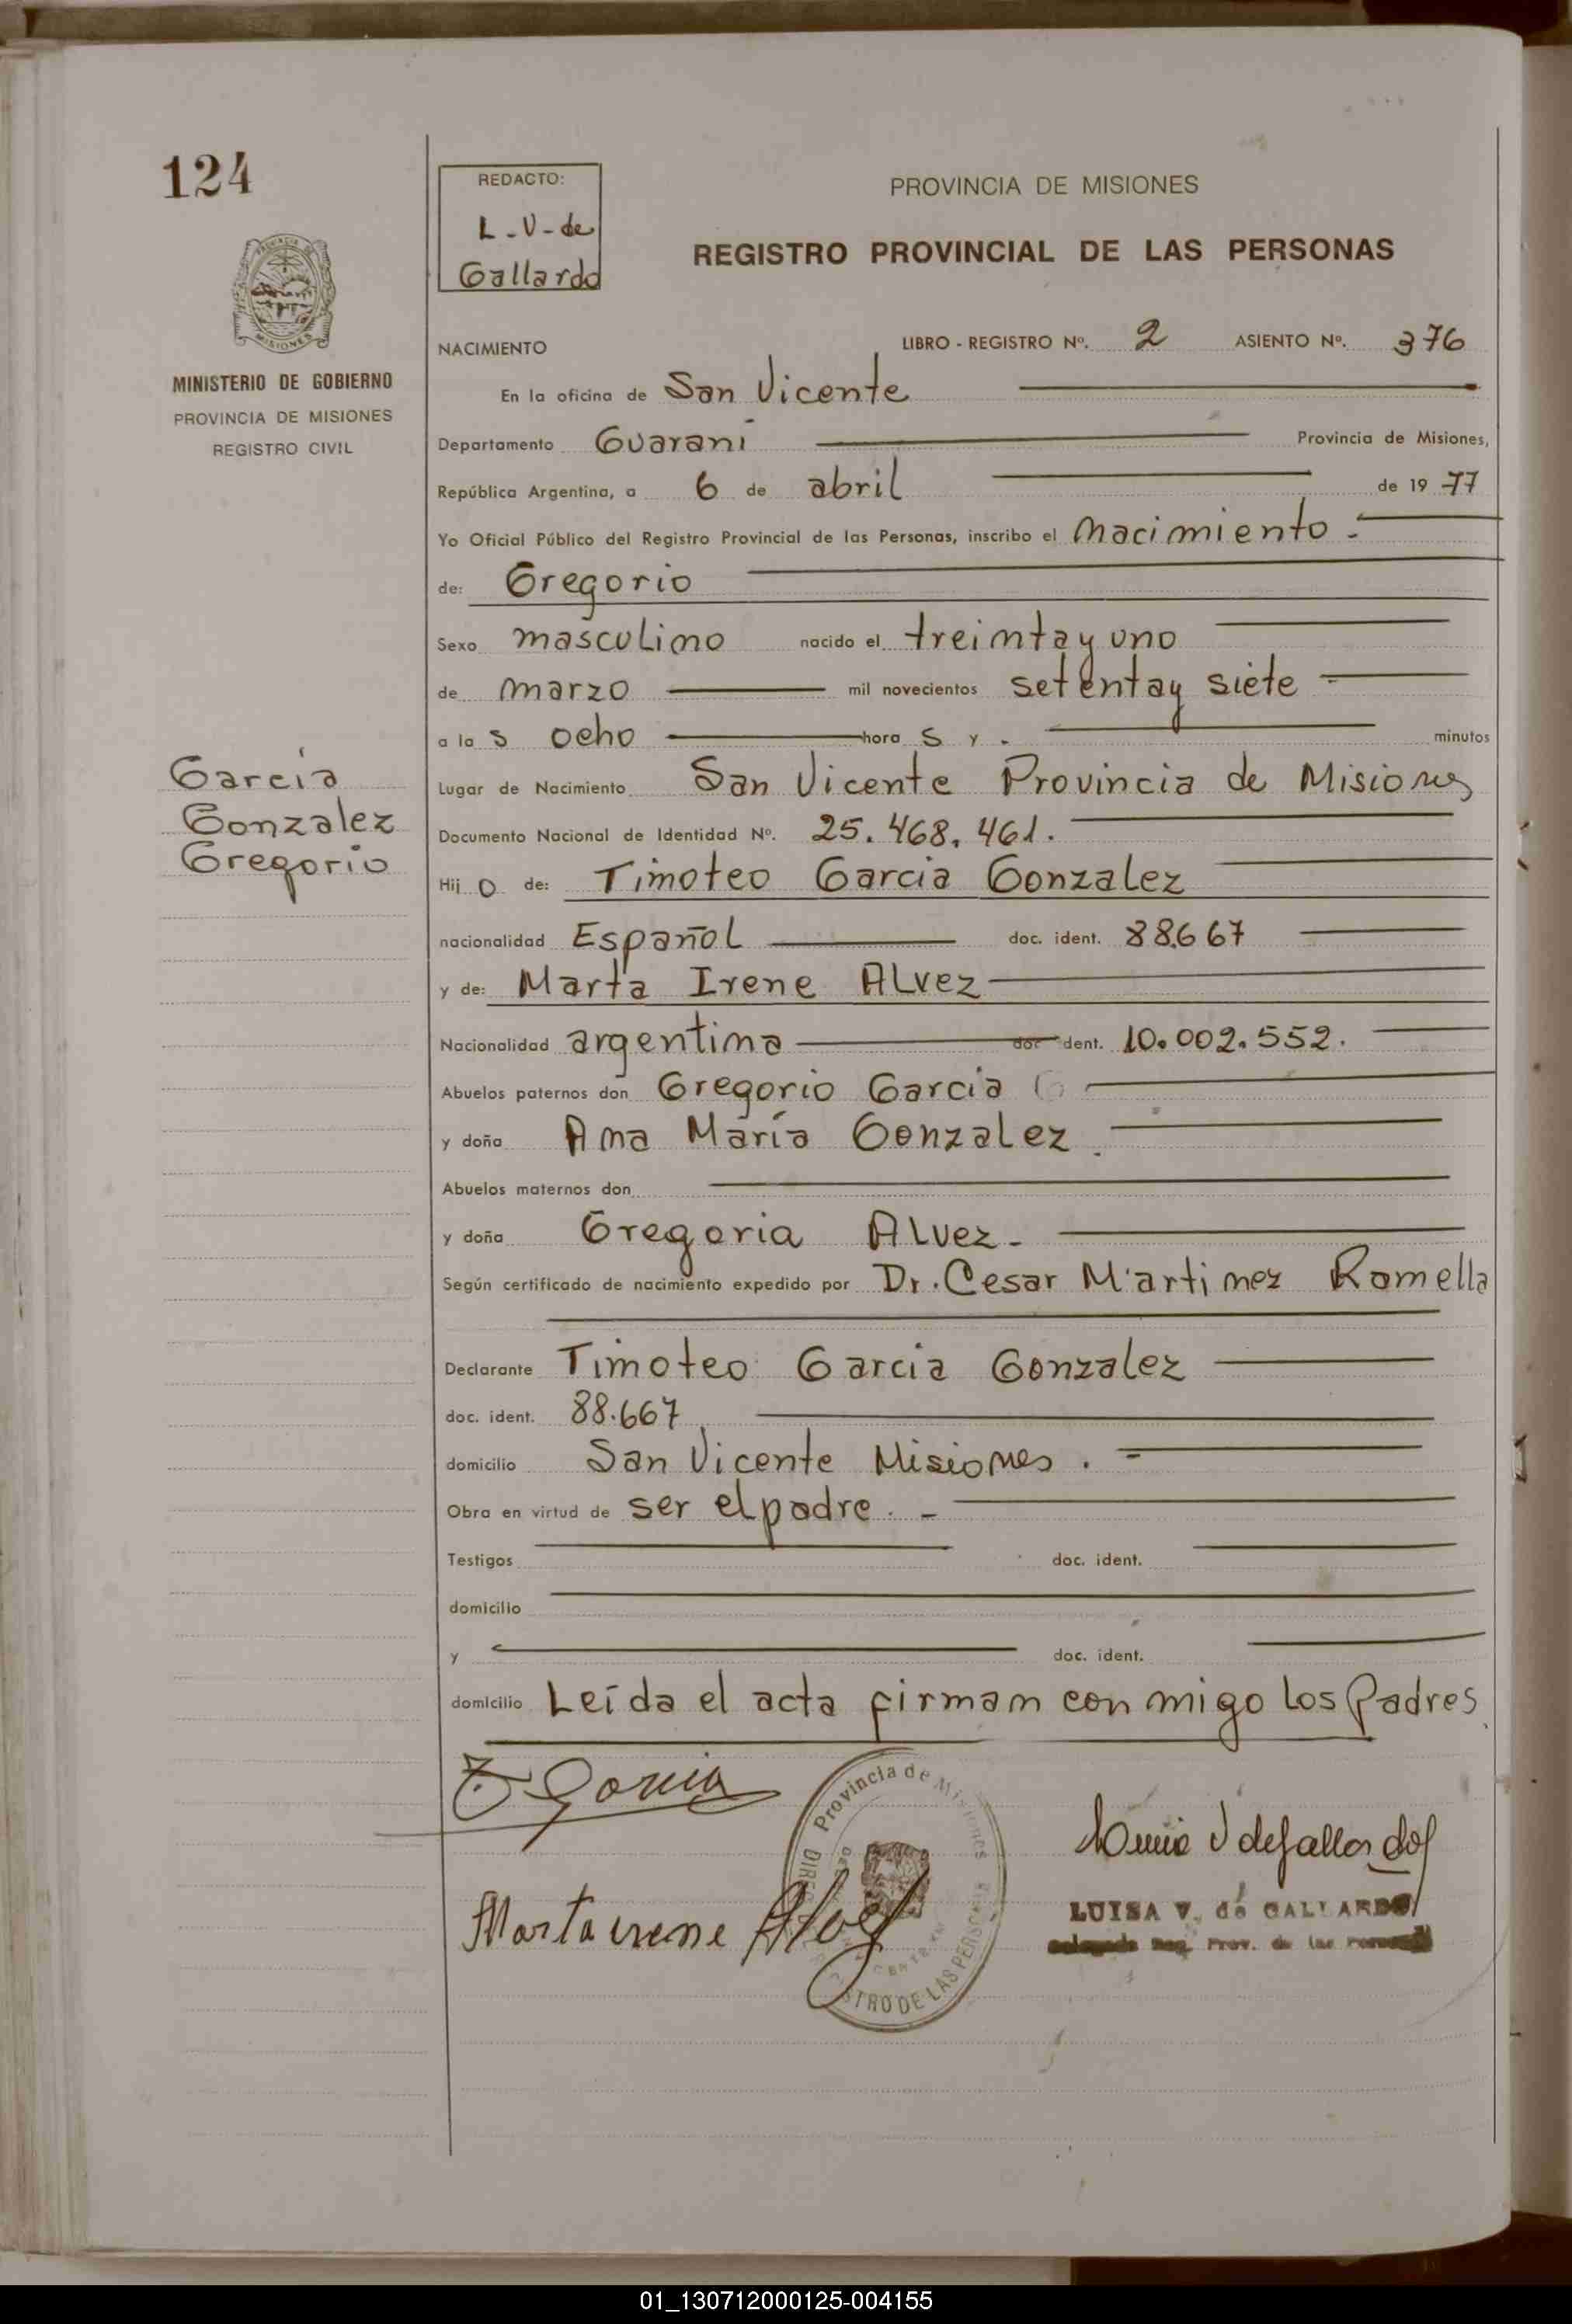 124
REDACTO:
L-V-de
Gallardo
PROVINCIA DE MISIONES
REGISTRO PROVINCIAL DE LAS PERSONAS
MISIONES
MINISTERIO DE GOBIERNO
PROVINCIA DE MISIONES
REGISTRO CIVIL
NACIMIENTO LIBRO - REGISTRO Nº. 2 ASIENTO Nº. 376
En la oficina de San Vicente
Departamento Guaraní Provincia de Misiones,
República Argentina, a 6 de abril de 19 77
Yo Oficial Público del Registro Provincial de las Personas, inscribo el nacimiento.
de: Gregorio
Sexo masculino nacido el treinta y uno
de marzo mil novecientos setenta y siete
a la s ocho hora s y . minutos
García
Gonzalez
Gregorio
Lugar de Nacimiento San Vicente Provincia de Misiones
Documento Nacional de Identidad Nº. 25.468.461.
Hij o de: Timoteo Garcia Gonzalez
nacionalidad Español doc. ident. 88.667
y de: Marta Irene Alvez
Nacionalidad argentina doc ident. 10.002.552.
Abuelos paternos don Gregorio Garcia G
y doña Ana María Gonzalez.
Abuelos maternos don
y doña Gregoria Alvez-
Según certificado de nacimiento expedido por Dr. Cesar Martinez Ramella
Declarante Timoteo Garcia Gonzalez
doc. ident. 88.667
domicilio San Vicente Misiones. -
Obra en virtud de ser el padre. -
Testigos doc. ident.
domicilio
y doc. ident.
domicilio Leída el acta firman conmigo los Padres
T Garcia
Provincia de Misiones
STRO DE LAS PERSONA
Marta irene Alvez
Luisa V de Gallardo
LUISA V. de GALLARDO
Delegada Reg. Prov. de las Personas
01_130712000125-004155